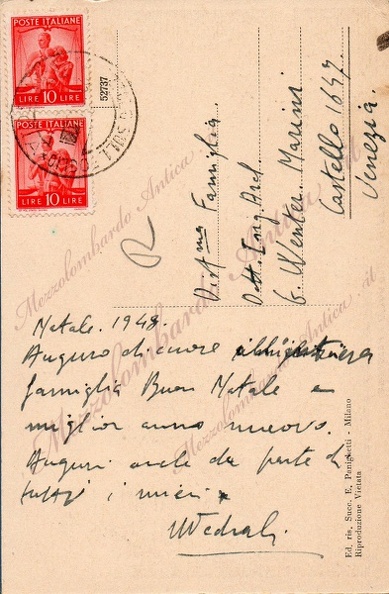 POSTE ITALIANE
LIRE 10 LIRE
POSTE ITALIANE
LIRE 10 LIRE
52737
Dist.ma Famiglia
Dott. Ing. Arch
G. Wenter. Marini
Castello 1647
Venezia.
Natale. 1948.
Auguro di cuore
famiglia Buon Natale e
miglior anno nuovo.
Auguri anche da parte di
tutti i miei.
Ed. ris. Succ. E. - Milano
Riproduzione Vietata
Mezzolombardo Antica
Mezzolombardo Antica .it